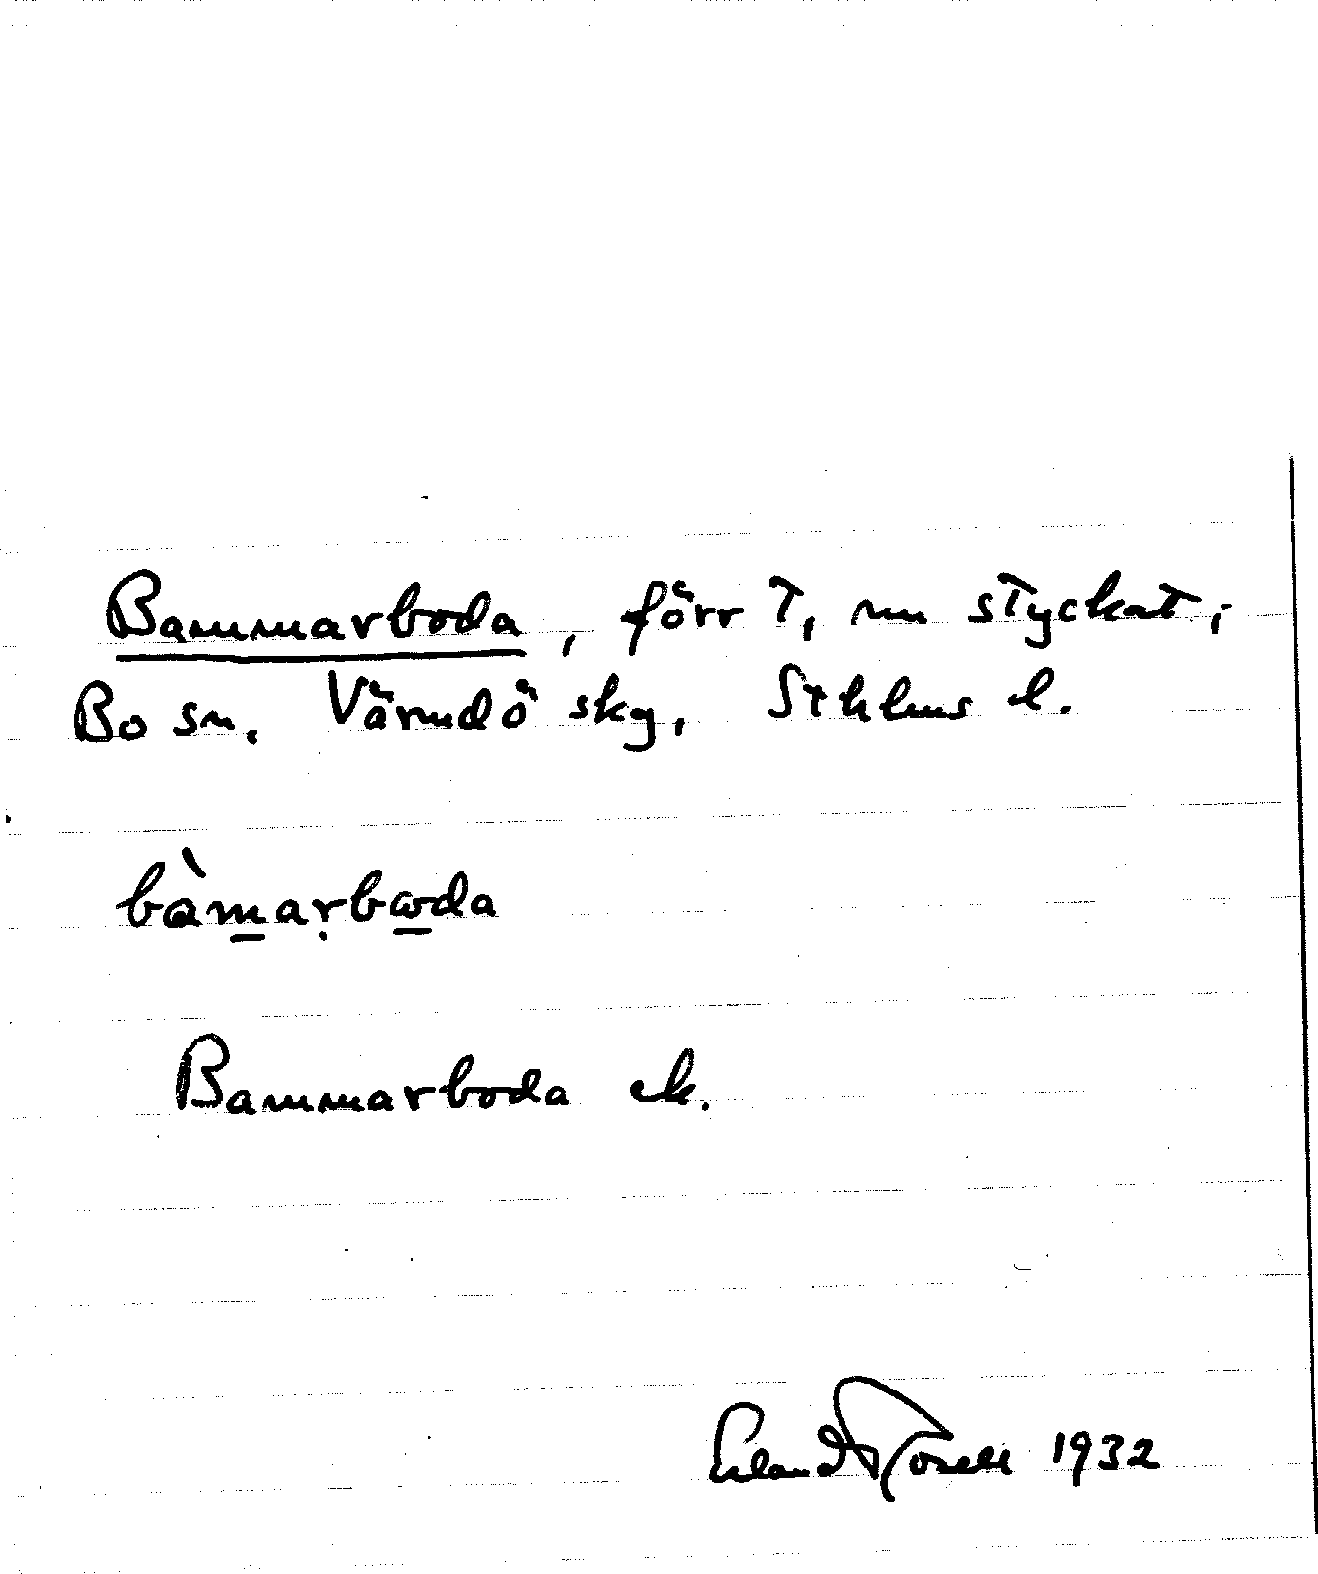 Bammarboda, förr T, nu styckat,
Bo sn. Värmdö skg, Sthlms l.
bàm̲aṛbω̲da
Bammarboda ek.
Erland Rosell 1932